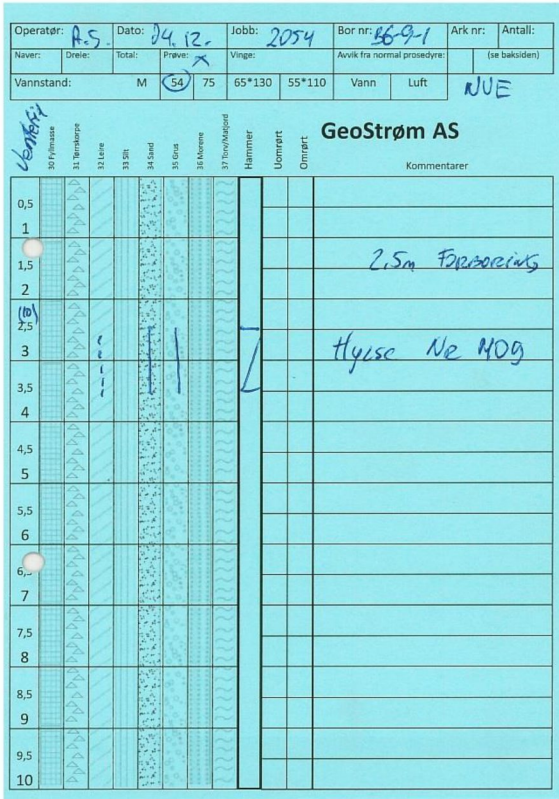 Operatør: A.S. Dato: 04.12. Jobb: 2054 Bor nr: B6-9-1 Ark nr: Antall:
Naver: Dreie: Total: Prøve: X Vinge: Avvik fra normal prosedyre: (se baksiden)
Vannstand: M 54 75 65*130 55*110 Vann Luft
GeoStrøm AS
30 Fyllmasse 31 Tørrskorpe 32 Leire 33 Silt 34 Sand 35 Grus 36 Morene 37 Torv/Matjord Hammer Uomrørt Omrørt Kommentarer
0,5
1
1,5 2,5m FORBORING
2
2,5
3 Hylse Nr M09
3,5
4
4,5
5
5,5
6
6,
7
7,5
8
8,5
9
9,5
10